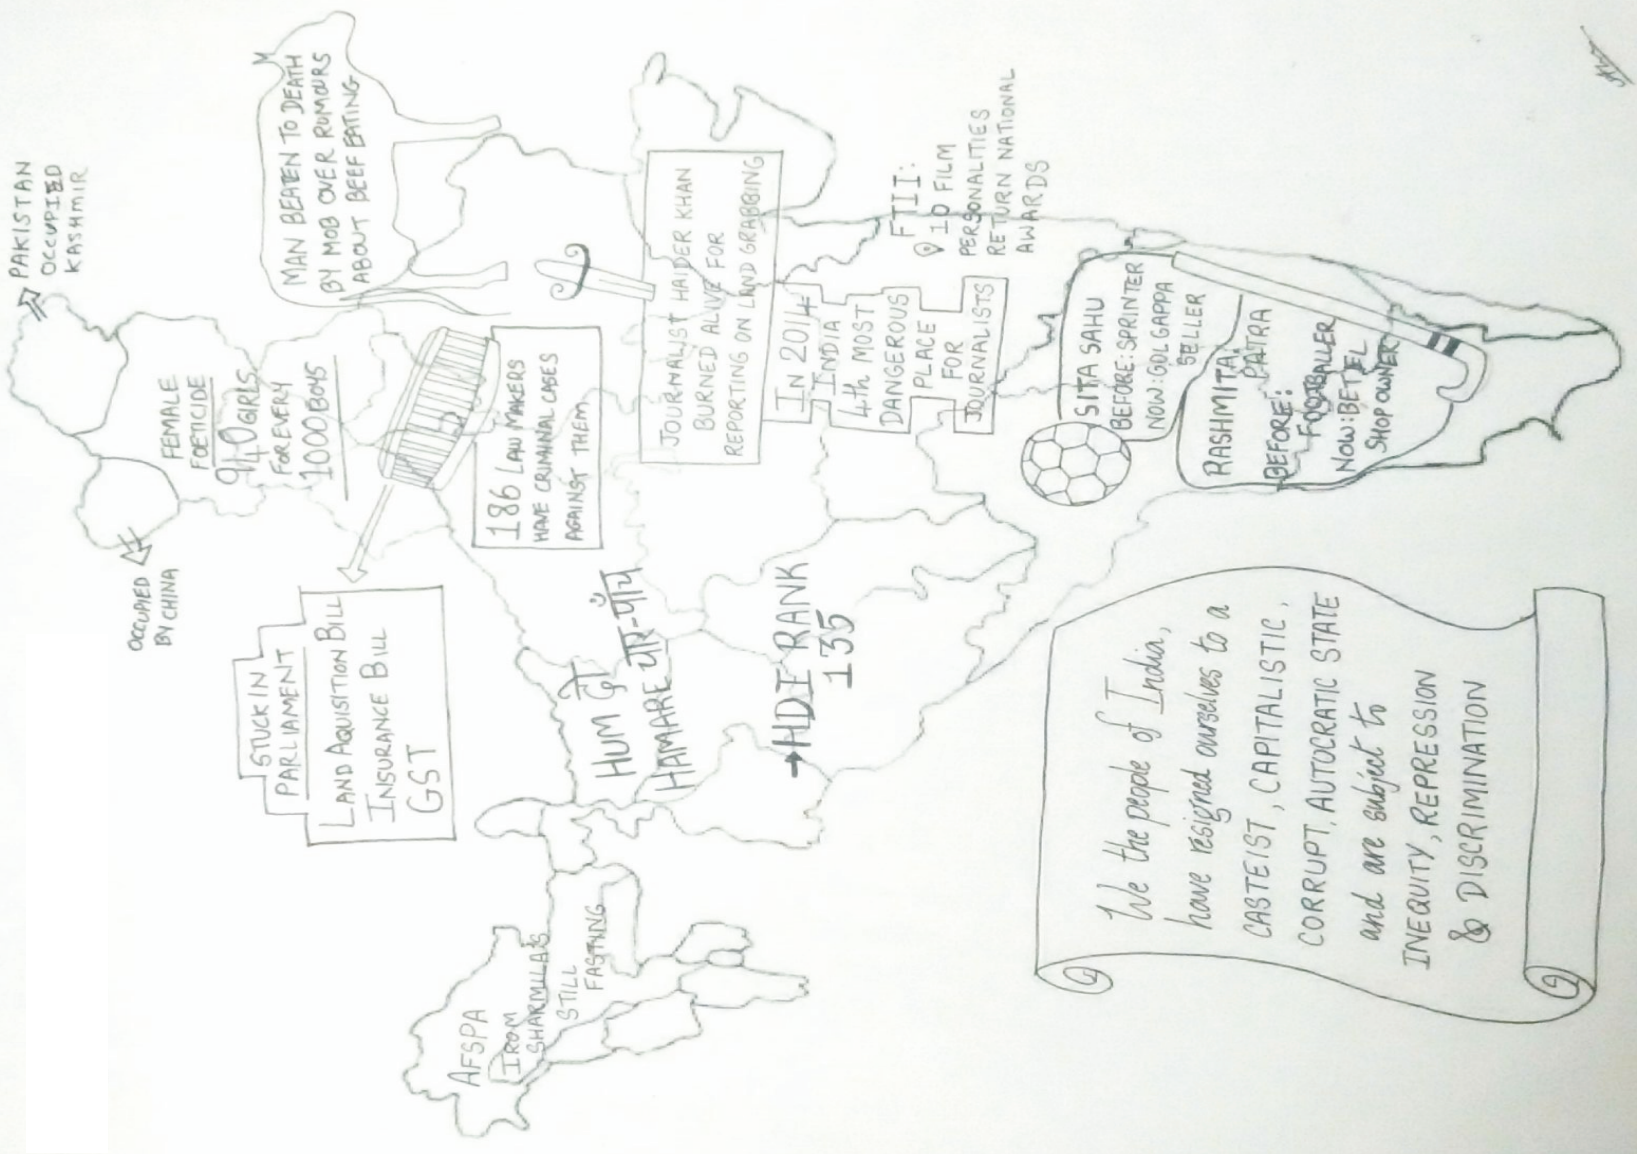 PAKISTAN
OCCUPIED
KASHMIR
OCCUPIED
BY CHINA
FEMALE
FOETICIDE
940 GIRLS
FOR EVERY
1000 BOYS
MAN BEATEN TO DEATH
BY MOB OVER RUMOURS
ABOUT BEEF EATING
STUCK IN
PARLIAMENT
LAND AQUISITION BILL
INSURANCE BILL
GST
186 LAW MAKERS
HAVE CRIMINAL CASES
AGAINST THEM
AFSPA
IROM
SHARMILA'S
STILL
FASTING
HUM दो
HAMARE चार-पाँच
JOURNALIST HAIDER KHAN
BURNED ALIVE FOR
REPORTING ON LAND GRABBING
→HDI RANK
135
IN 2014
INDIA
4th MOST
DANGEROUS
PLACE
FOR
JOURNALISTS
FTII:
10 FILM
PERSONALITIES
RETURN NATIONAL
AWARDS
SITA SAHU
BEFORE: SPRINTER
NOW: GOLGAPPA
SELLER
RASHMITA
PATRA
BEFORE:
FOOTBALLER
NOW: BETEL
SHOP OWNER
We the people of India,
have resigned ourselves to a
CASTEIST, CAPITALISTIC,
CORRUPT, AUTOCRATIC STATE
and are subject to
INEQUITY, REPRESSION
& DISCRIMINATION